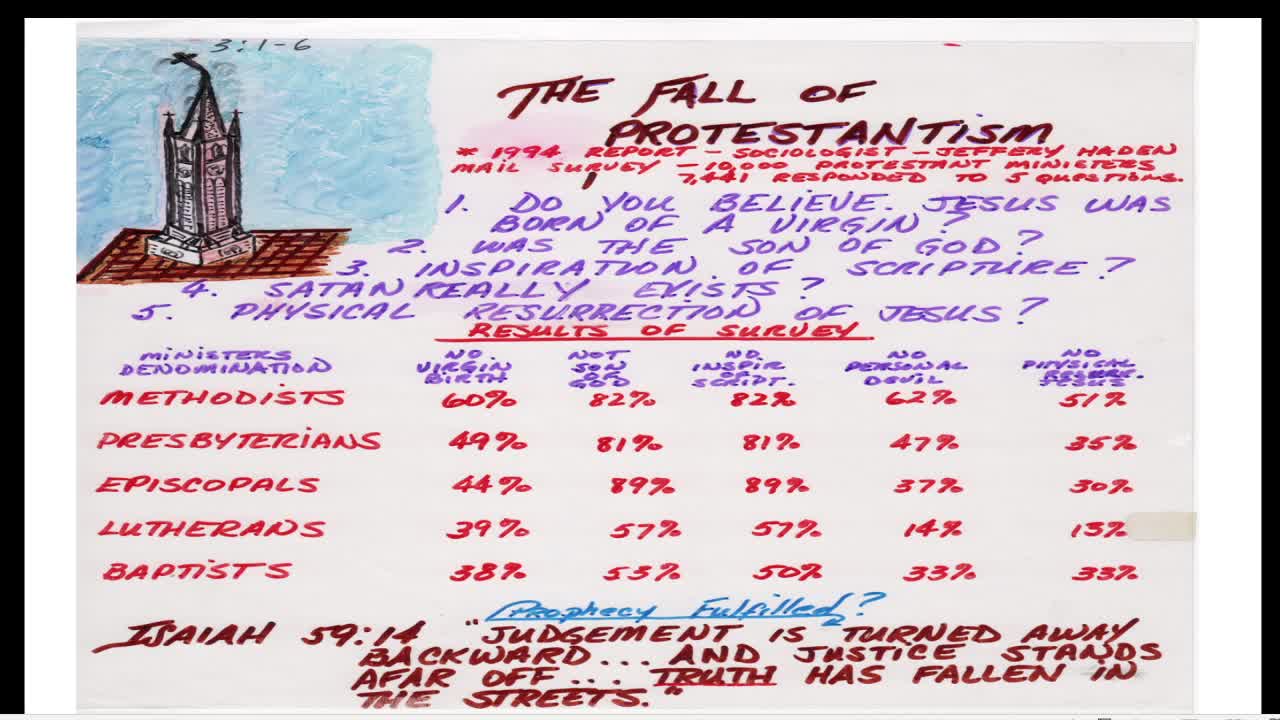 3:1-6
THE FALL OF
PROTESTANTISM
* 1994 REPORT - SOCIOLOGIST - JEFFERY HADEN
MAIL SURVEY - 10,000 PROTESTANT MINISTERS
7,441 RESPONDED TO 5 QUESTIONS.
1. DO YOU BELIEVE. JESUS WAS
BORN OF A VIRGIN?
2. WAS THE SON OF GOD?
3. INSPIRATION OF SCRIPTURE?
4. SATAN REALLY EXISTS?
5. PHYSICAL RESURRECTION OF JESUS?
RESULTS OF SURVEY
MINISTERS DENOMINATION NO VIRGIN BIRTH NOT SON OF GOD NO INSPIR OF SCRIPT. NO PERSONAL DEVIL NO PHYSICAL RESURR. JESUS
METHODISTS 60% 82% 82% 62% 51%
PRESBYTERIANS 49% 81% 81% 47% 35%
EPISCOPALS 44% 89% 89% 37% 30%
LUTHERANS 39% 57% 57% 14% 13%
BAPTISTS 38% 53% 50% 33% 33%
Prophecy Fulfilled?
ISAIAH 59:14 "JUDGEMENT IS TURNED AWAY
BACKWARD... AND JUSTICE STANDS
AFAR OFF... TRUTH HAS FALLEN IN
THE STREETS."